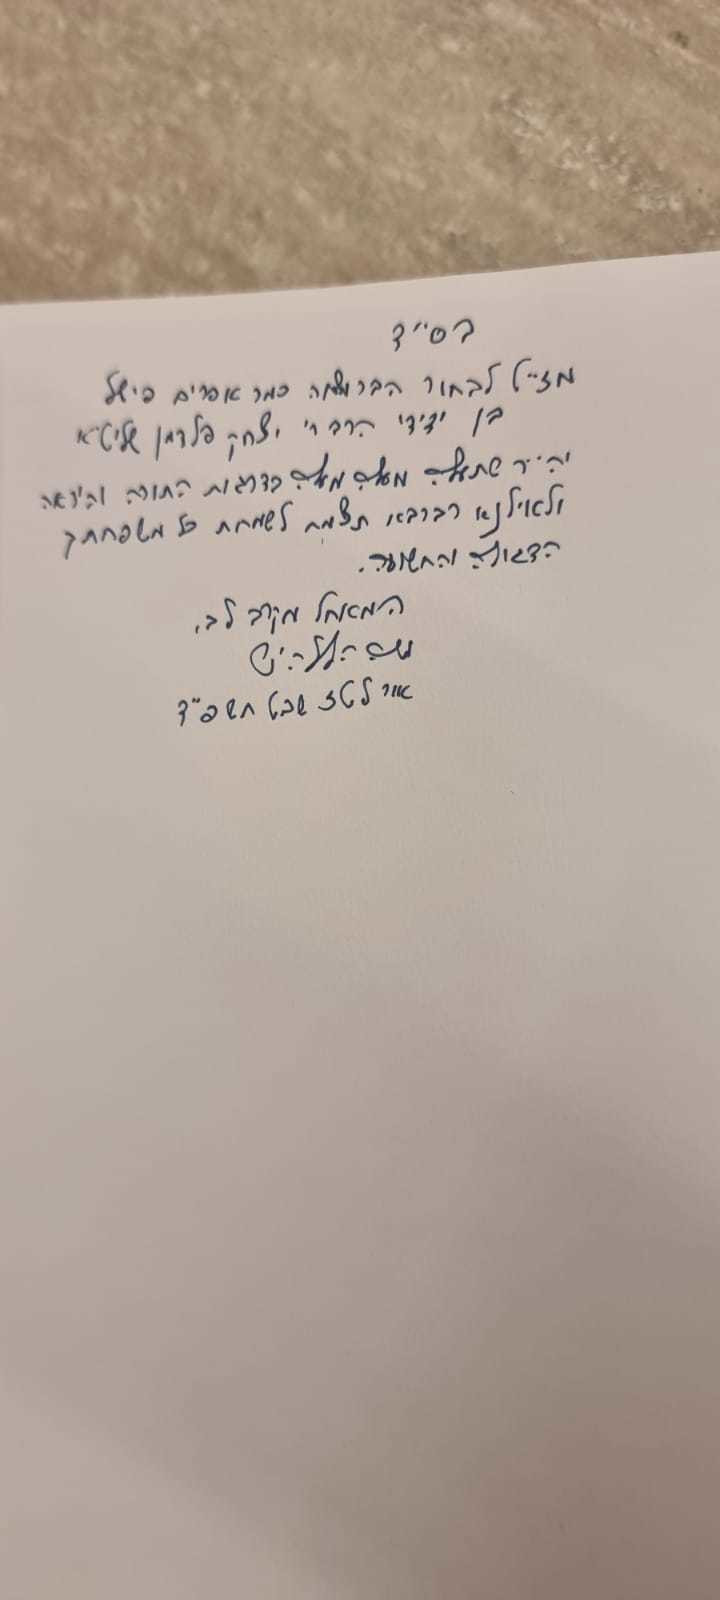 בס״ד
מז״ט לבחור הבר מצוה כמר אפרים פישל
בן ידידי הרב ר' יצחק פלדמן שליט״א
יה״ר שתעלה מעלה מעלה בדרגות התורה והיראה
ולאילנא רברבא תצמח לשמחת כל משפחתך
הדגולה והחשובה.
המאחל מקרב לב,
אור לטז שבט תשפ״ד